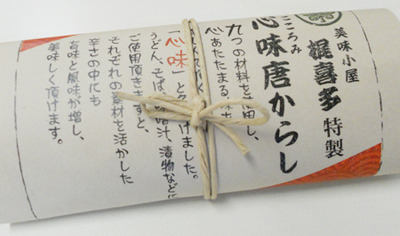 美味小屋
梶喜多 特製
こころみ
心味唐からし
九つの材料を使用し、
心あたたまる味
「心味」と けました。
うどん、そば、 汁、漬物などに
ご使用頂きますと、
それぞれの素材を活かした
辛さの中にも
旨味と風味が増し、
美味しく頂けます。